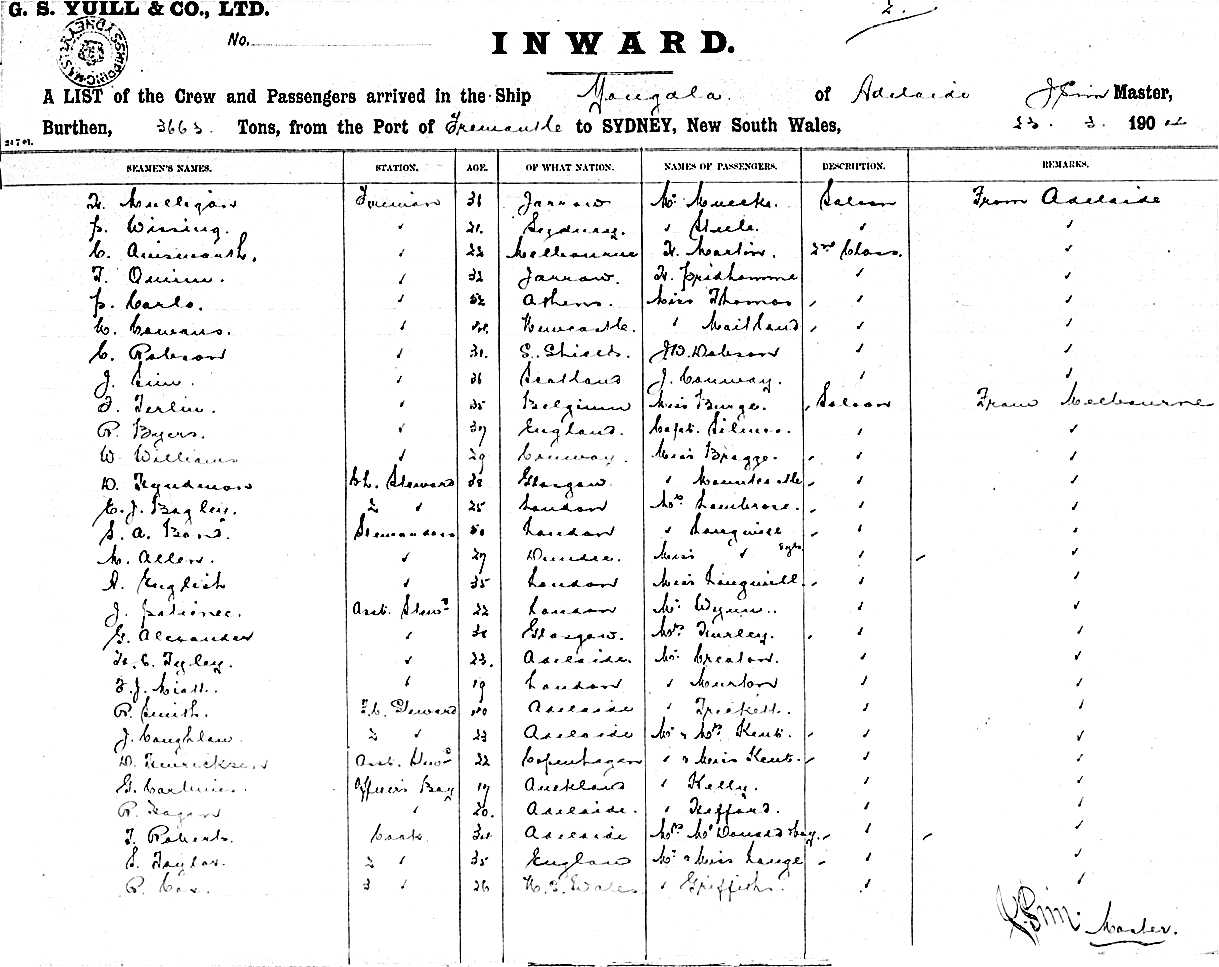 G. S. YUILL & CO., LTD.
2.
No.
INWARD.
A LIST of the Crew and Passengers arrived in the Ship Yongala of Adelaide J Sim Master,
Burthen, 3663 Tons, from the Port of Fremantle to SYDNEY, New South Wales, 23. 3. 190
SEAMEN'S NAMES. STATION. AGE. OF WHAT NATION. NAMES OF PASSENGERS. DESCRIPTION. REMARKS.
H. Mulligan Fireman Jarrow Mr Muecke Saloon From Adelaide
P. Wissing. " 21. Sydney. " Steele "
C. Ainsworth. " 22 Melbourne H. Martin. 2nd Class. "
T. Quinn. " 32 Jarrow. H. Pridhomme "
P. Carlo. " Athens. Miss Thomas " "
" Newcastle. " Maitland " "
C. Robson " 31. S. Shields. J.D. Dobson " "
J. Sim. " 36 Scotland J. Conway. " "
F. Terlin. " 35 Belgium Miss Burge. Saloon From Melbourne
R. Byers. " 37 England. Capt. " "
W. Williams " 29 Conway. Miss Bragge. " "
D. Hyndman Ch. Steward 38 Glasgow. " " "
C. J. Bagley. 2 " 25 London Mrs " "
S. A. London " Longwill " "
M. Allen. " 29 Dundee. Miss " "
A. English " 35 London Miss Longwill. " "
J. Asst. Stewd 22 London Mr Wynn. " "
G. Alexander " Glasgow. Mrs Hurley. " "
H. C. Tyley. " 23. Adelaide. Mr Creaton. " "
F. J. " 19 London " Murton " "
R. Smith. F.C. Steward Adelaide " Trickett. " "
J. Coughlan 2 " 23 Adelaide Mr & Mrs Kent. " "
D. Henricksen Asst. 22 Copenhagen " & Miss Kent. " "
G. Officers Boy 19 Auckland " Kelly. " "
R. Hagen " 20. Adelaide. " Hefford. " "
T. Roberts. Cook Adelaide Mrs " "
S. Taylor. 2 " 35 England Mr & Miss Lange " "
R. Cox. 3 " 26 N. S. Wales " Griffiths. " "
J. Sim. Master.